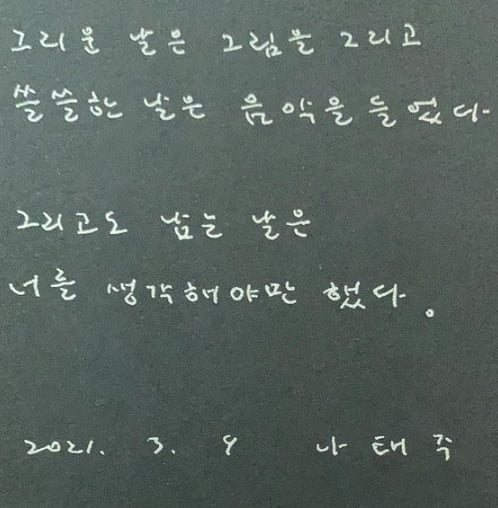 그리운 날은 그림을 그리고
쓸쓸한 날은 음악을 들었다.
그리고도 남는 날은
너를 생각해야만 했다.
2021. 3. 9 나태주